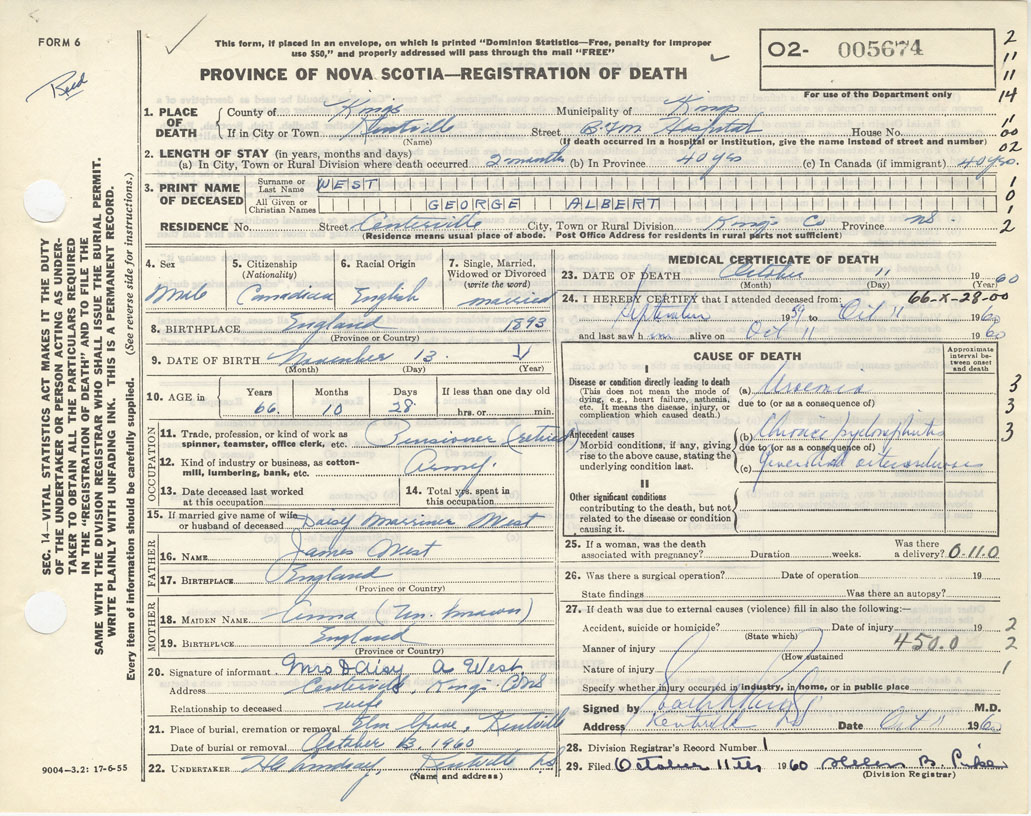 FORM 6
Bred
This form, if placed in an envelope, on which is printed "Dominion Statistics—Free, penalty for improper
use $50," and properly addressed will pass through the mail "FREE"
PROVINCE OF NOVA SCOTIA—REGISTRATION OF DEATH
O2- 005674
For use of the Department only
2
11
11
14
11
00
02
1
0
1
2
1. PLACE OF DEATH
County of Kings Municipality of Kings
If in City or Town Kentville Street B.F.M. Hospital House No.
(Name) (If death occurred in a hospital or institution, give the name instead of street and number)
2. LENGTH OF STAY (in years, months and days)
(a) In City, Town or Rural Division where death occurred 2 months (b) In Province 40 yrs (c) In Canada (if immigrant) 40 yrs.
3. PRINT NAME OF DECEASED
Surname or Last Name WEST
All Given or Christian Names GEORGE ALBERT
RESIDENCE No. Street Centerville City, Town or Rural Division Kings Co Province NS.
(Residence means usual place of abode. Post Office Address for residents in rural parts not sufficient)
4. Sex Male
5. Citizenship (Nationality) Canadian
6. Racial Origin English
7. Single, Married, Widowed or Divorced (write the word) married
8. BIRTHPLACE England 1893
(Province or Country)
9. DATE OF BIRTH November 13
(Month) (Day) (Year)
10. AGE in Years Months Days If less than one day old
66 10 28 hrs. or min.
OCCUPATION
11. Trade, profession, or kind of work as spinner, teamster, office clerk, etc. Pensioner (retired
12. Kind of industry or business, as cotton-mill, lumbering, bank, etc. Army.
13. Date deceased last worked at this occupation
14. Total yrs. spent in this occupation
15. If married give name of wife or husband of deceased Daisy Marriner West
FATHER
16. NAME James West
17. BIRTHPLACE England
(Province or Country)
MOTHER
18. MAIDEN NAME Anna (Un. known)
19. BIRTHPLACE England
(Province or Country)
20. Signature of informant Mrs Daisy A West
Address Centerville, Kings Co NS
Relationship to deceased wife
21. Place of burial, cremation or removal Elm Grove, Kentville
Date of burial or removal October 13, 1960
22. UNDERTAKER H C Lindsay, Kentville NS
(Name and address)
MEDICAL CERTIFICATE OF DEATH
23. DATE OF DEATH October 11 1960
(Month) (Day) (Year)
24. I HEREBY CERTIFY that I attended deceased from: 66-X-28-00
September 1959 to Oct 11 1960
and last saw him alive on Oct 11 1960
CAUSE OF DEATH
Approximate interval between onset and death
I
Disease or condition directly leading to death
(This does not mean the mode of dying, e.g., heart failure, asthenia, etc. It means the disease, injury, or complication which caused death.)
(a) Uraemia
due to (or as a consequence of)
Antecedent causes
Morbid conditions, if any, giving rise to the above cause, stating the underlying condition last.
(b) Chronic pyelonephritis
due to (or as a consequence of)
(c) Generalized arteriosclerosis
II
Other significant conditions
contributing to the death, but not related to the disease or condition causing it.
3
3
3
25. If a woman, was the death associated with pregnancy? Duration weeks. Was there a delivery? 0-11.0
26. Was there a surgical operation? Date of operation 19
State findings Was there an autopsy?
27. If death was due to external causes (violence) fill in also the following:—
Accident, suicide or homicide? Date of injury 19 2
(State which)
Manner of injury 450.0 2
(How sustained
Nature of injury 1
Specify whether injury occurred in industry, in home, or in public place
Signed by M.D.
Address Kentville NS Date Oct 11 1960
28. Division Registrar's Record Number 1
29. Filed October 11th 1960 Helen B. Pike
(Division Registrar)
SEC. 14—VITAL STATISTICS ACT MAKES IT THE DUTY
OF THE UNDERTAKER OR PERSON ACTING AS UNDER-
TAKER TO OBTAIN ALL THE PARTICULARS REQUIRED
IN THE "REGISTRATION OF DEATH" AND TO FILE THE
SAME WITH THE DIVISION REGISTRAR WHO SHALL ISSUE THE BURIAL PERMIT.
WRITE PLAINLY WITH UNFADING INK. THIS IS A PERMANENT RECORD.
Every item of information should be carefully supplied. (See reverse side for instructions.)
9004—3.2: 17-6-55